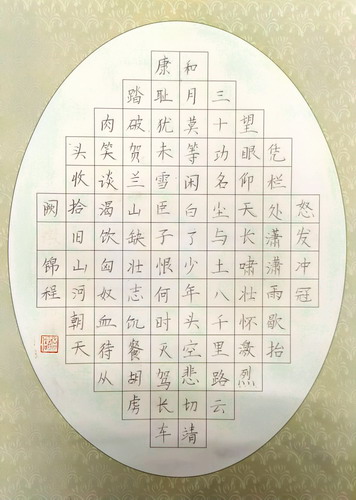 怒发冲冠
凭栏处潇潇雨歇抬
望眼仰天长啸壮怀激烈
三十功名尘与土八千里路云
和月莫等闲白了少年头空悲切靖
康耻犹未雪臣子恨何时灭驾长车
踏破贺兰山缺壮志饥餐胡虏
肉笑谈渴饮匈奴血待从
头收拾旧山河朝天
阙 锦程